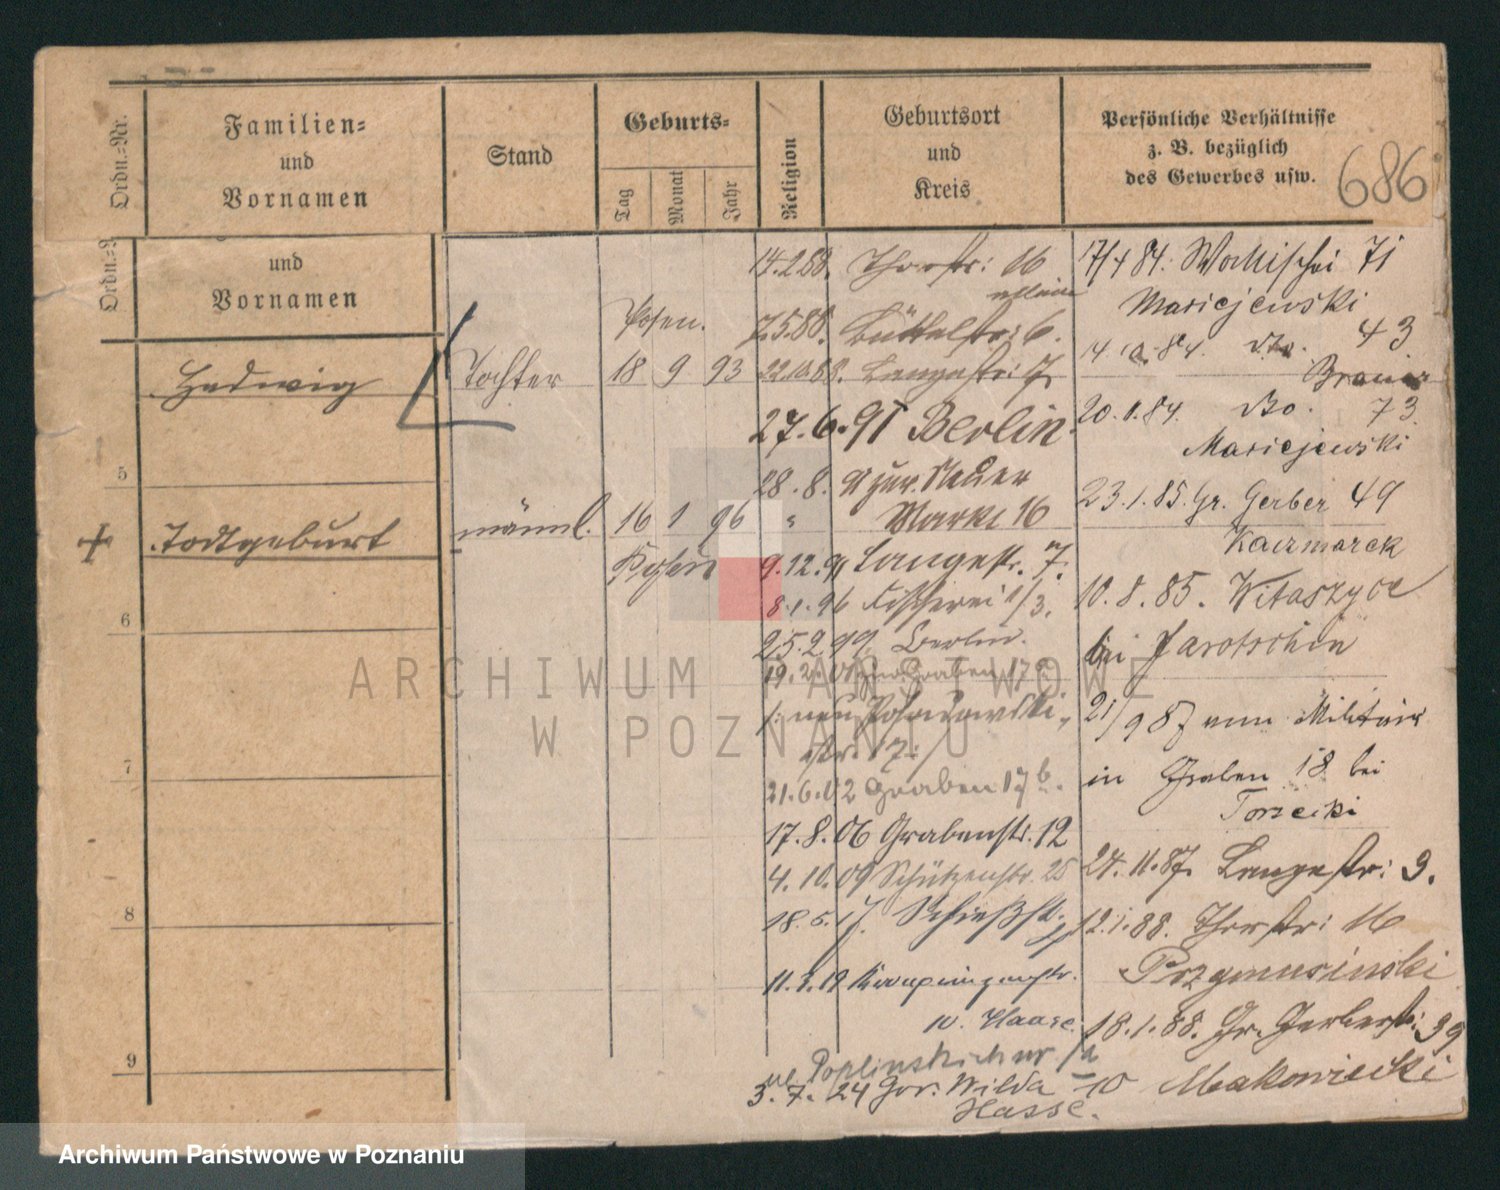 Ordn.-Nr.
Familien-
und
Vornamen
Stand
Geburts-
Tag
Monat
Jahr
Religion
Geburtsort
und
Kreis
Persönliche Verhältnisse
z. B. bezüglich
des Gewerbes usw.
686
Ordn.-N
und
Vornamen
Hedwig
Tochter
Posen.
18 9 93
5
+ Todtgeburt
männl.
16 1 96
6
7
8
9
14.2.88. Thorstr: 16
7.5.88. Büttelstr: 6.
22.10.88. Langestr: 7
27.6.91 Berlin.
28.8.91 zur. Neuer
Markt 16
9.12.91 Langestr. 7.
8.1.96 Fischerei 1/3.
25.2.99 Berlin.
Graben 17a
/: neu Posadowski-
str. 17 :/
21.6.02 Graben 17b.
17.8.06 Grabenstr. 12
4.10.09 Schützenstr. 25
18.5.17. Schießstr.
11.3.19
w. Haase.
ul. Poplinskich nr
3.7.24 Gór. Wilda 10
Hasse.
17/4 84. Wallischei 71
Maricjewski
14.10.84. do. 43
20.11.84. do. 73
Maricjewski
23.1.85. Gr. Gerber 49
Kaczmarek
10.8.85. Witaszyce
bei Jarotschin
21/9 87 vom Militair
in Graben 18 bei
Torzecki
24.11.87. Langestr: 3.
12.1.88. Thorstr: 16
Przymusinski
18.1.88. Gr. Gerberstr: 39
Makowiecki
ARCHIWUM PAŃSTWOWE
W POZNANIU
Archiwum Państwowe w Poznaniu